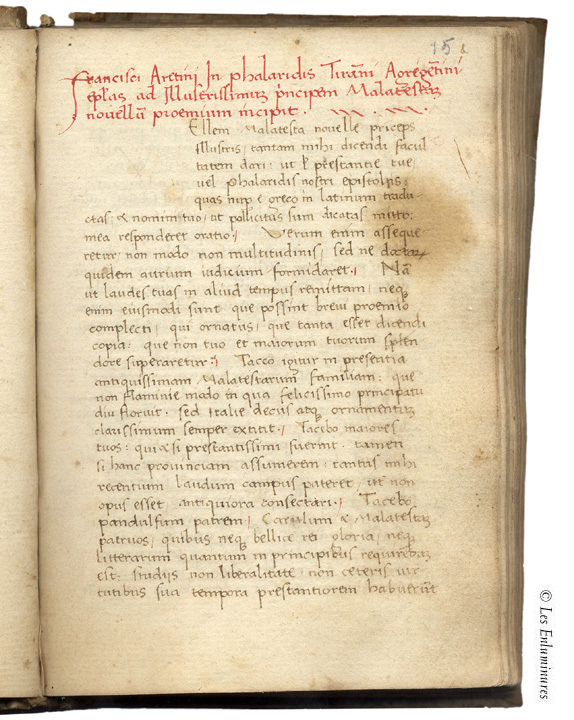 15
Francisci Aretini In phalaridis Tiran̄i Agregen̄tini
ep̄las ad Illustrissimuȝ prīncipem Malatestaȝ
novellū proemium incipit.
Ellem Malatesta novelle prīceps
illustris, tantam mihi dicendi facul
tatem dari: ut l prestantie tue,
vel phalaridis nostri epistolis,
quas nup e greco in latinum tradu
ctas, & nomini tuo, ut pollicitus sum dicatas mitto,
mea responderet oratio. Verum enim asseque
retur, non modo non multitudinis, sed ne doctorȝ
quidem aurium iudicium formidaret. Nā
ut laudes tuas in aliud tempus remittam, neqȝ
enim eiusmodi sunt que possint brevi proemio
complecti, qui ornatus, que tanta esset dicendi
copia, que non tuo et maiorum tuorum splen
dore superaretur? Taceo igitur in presentia
antiquissimam Malatestarum familiam, que
non flaminie modo in qua felicissimo principatu
diu floruit, sed Italie decus atqȝ ornamentuȝ
clarissimum semper extitit. Tacebo maiores
tuos, qui & si prestantissimi fuerint, tamen
si hanc provinciam assumerem, tantus mihi
recentium laudum campus pateret, ut non
opus esset antiquiora consectari. Tacebo
pandulfum patrem, Carulum & Malatestaȝ
patruos, quibus neqȝ bellice rei gloria, neqȝ
litterarum quantum in principibus requirenduȝ
est, studijs non liberalitate, non ceteris vir
tutibus sua tempora prestantiorem habuerūt
© Les Enluminures